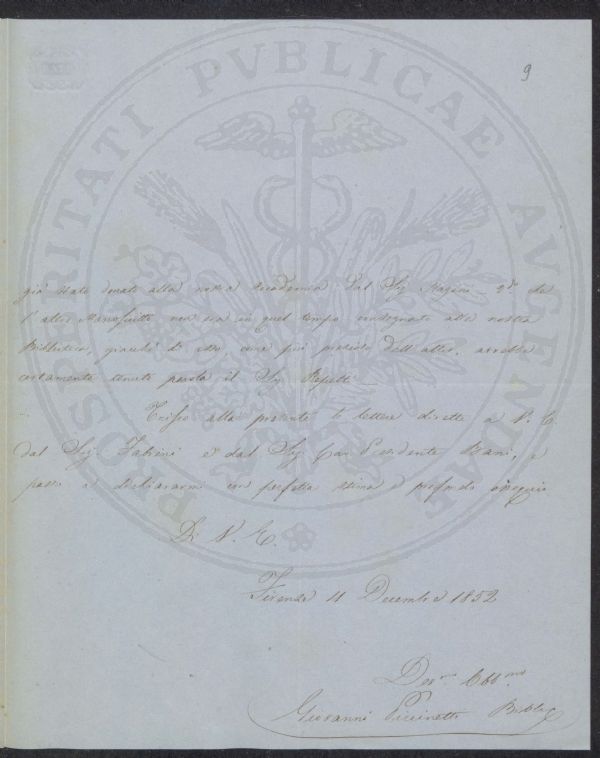 9
PROSPERITATI PVBLICAE AVGENDAE
già stato donato alla nostra Accademia dal Sig. 2° che
l'altro Manoscritto non era in quel tempo consegnato alla nostra
Biblioteca, giacchè di esso, come più prezioso dell'altro, avrebbe
certamente tenuto parola il Sig. Repetti
alla presente le lettere dirette a V. E.
dal Sig. Fabrini e dal Sig. Presidente e
passo a dichiararmi con perfetta stima e profondo ossequio
Di V. E.
Firenze 11 Decembre 1852
Dev.mo Obb.mo
Giovanni